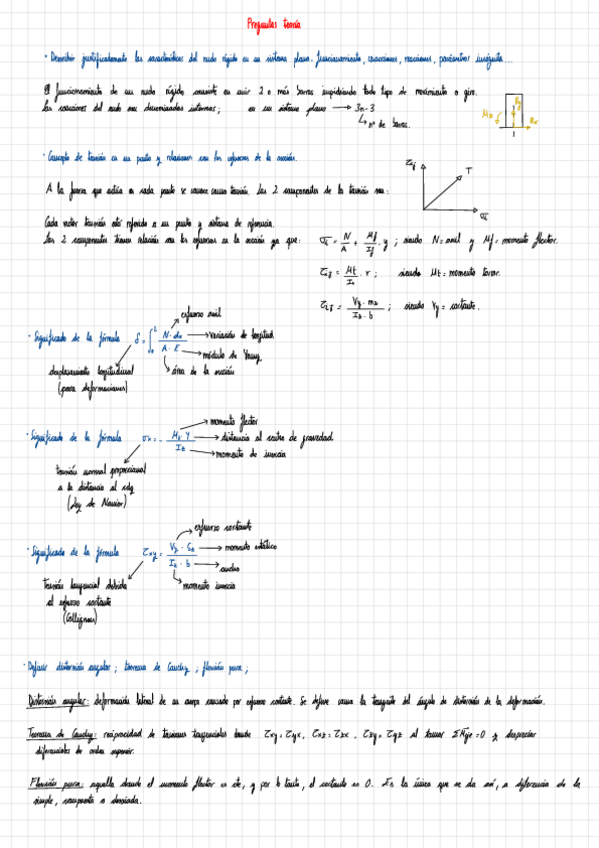 Preguntas teoría
· Describir justificadamente las características del nudo rígido en un sistema plano. funcionamiento, coacciones, reacciones, parámetros incógnita...
El funcionamiento de un nudo rígido consiste en unir 2 o más barras impidiendo todo tipo de movimiento o giro.
Las coacciones del nudo son denominadas internas; en un sistema plano → 3n-3
↳ nº de barras.
· Concepto de tensión en un punto y relaciones con los esfuerzos de la sección.
A la fuerza que actúa en cada punto se conoce como tensión. Las 2 componentes de la tensión son:
T
Cada vector tensión está referido a un punto y sistema de referencia.
Las 2 componentes tienen relación con los esfuerzos en la sección ya que: σx = N/A + Mf/If · y ; siendo N = axil y Mf = momento flector.
= Mt/Io · r ; siendo Mt = momento torsor.
= Vy · mz / Iz · b ; siendo Vy = cortante.
esfuerzo axil
· Significado de la fórmula δ = ∫₀ᴸ N · dx / A · E → variación de longitud
módulo de Young
desplazamiento longitudinal área de la sección
(para deformaciones)
momento flector
· Significado de la fórmula σx = - Mz · y / Iz → distancia al centro de gravedad
momento de inercia
tensión normal proporcional
a la distancia al cdg
(Ley de Navier)
esfuerzo cortante
· Significado de la fórmula τxy = Vy · Sz / Iz · b → momento estático
ancho
tensión tangencial debida momento inercia
al esfuerzo cortante
(Collignon)
· Definir distorsión angular; teorema de Cauchy; flexión pura;
Distorsión angular: deformación lateral de un cuerpo causado por esfuerzo cortante. Se define como la tangente del ángulo de distorsión de la deformación.
Teorema de Cauchy: reciprocidad de tensiones tangenciales donde τxy = τyx, τxz = τzx, τzy = τyz al tomar ΣMeje = 0 y despreciar
diferenciales de orden superior.
Flexión pura: aquella donde el momento flector es cte, y por lo tanto, el cortante es 0. Es la única que se da así, a diferencia de la
simple, compuesta o desviada.